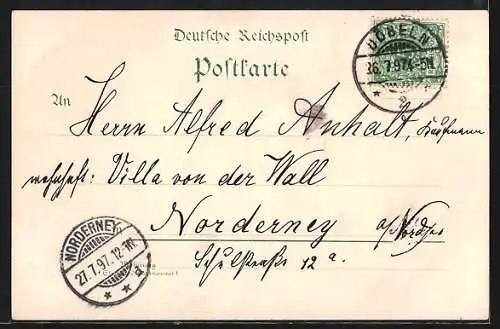 Deutsche Reichspost
Postkarte
DÖBELN
26.7.97 4-5N
An
Herrn Alfred Anhalt, Kaufmann
wohnhaft: Villa von der Wall
Norderney a/Nordsee
Schulstraße 12 a.
NORDERNEY
27.7.97. 12-1N.